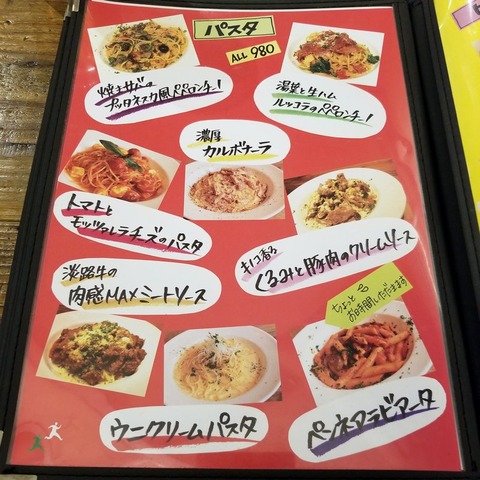 パスタ
ALL 980
焼きサバの
プッタネスカ風ペペロンチーノ!
湯葉と生ハム
ルッコラのペペロンチーノ!
濃厚
カルボナーラ
トマトと
モッツァレラチーズのパスタ
キノコ香る
くるみと豚肉のクリームソース
淡路牛の
肉感MAXミートソース
ちょっと
お時間いただきます
ウニクリームパスタ
ペンネアラビアータ